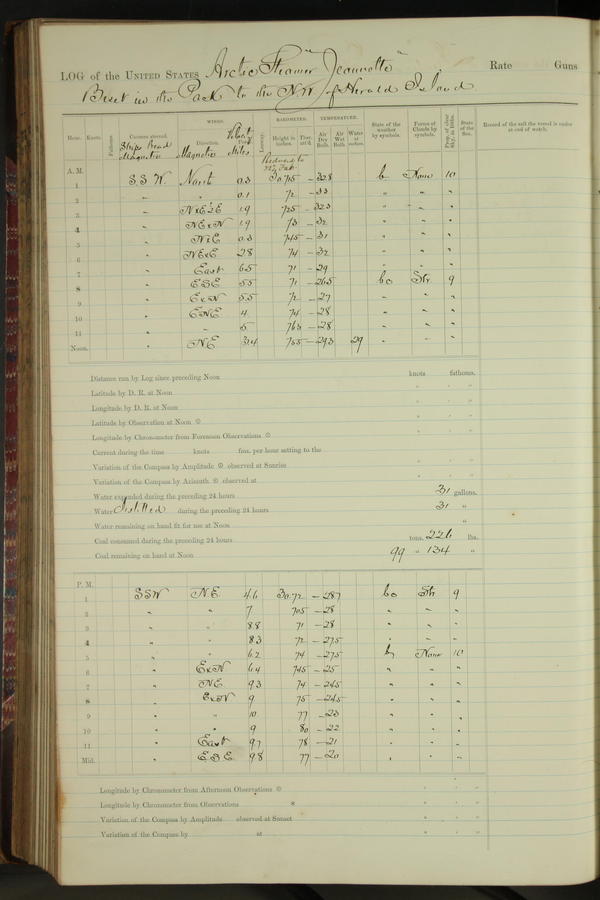 LOG of the UNITED STATES Arctic Steamer "Jeannette" Rate Guns
Beset in the Pack to the N.W. of Herald Island
WINDS. BAROMETER. TEMPERATURE.
Hour. Knots. Fathoms. Courses steered. Direction. Leeway. Height in inches. Ther. att'd. Air Dry Bulb. Air Wet Bulb. Water at surface. State of the weather by symbols. Forms of Clouds by symbols. Prop. of clear sky, in 10ths. State of the Sea. Record of the sail the vessel is under at end of watch.
Ships Head Magnetic Magnetic Miles
Reduced to
A. M.
1 S S W. North 0.3 30.715 -32.8 b None 10
2 " " 0.1 72 -33 " " "
3 " NxE½E 1.9 725 -32.3 " " "
4 " NExN 1.9 73 -32 " " "
5 " NxE 0.3 745 -31 " " "
6 " NExE 2.8 74 -32 " " "
7 " East 6.5 71 -29 " " "
8 " ESE 5.5 71 -26.5 bc Str 9
9 " ExN 5.5 72 -27 " " "
10 " ENE 4. 74 -28 " " "
11 " " 5 763 -28 " " "
Noon. " NE 3.4 755 -29.3 29 " " "
Distance run by Log since preceding Noon knots fathoms.
Latitude by D. R. at Noon " "
Longitude by D. R. at Noon " "
Latitude by Observation at Noon ☉ " "
Longitude by Chronometer from Forenoon Observations ☉ " "
Current during the time knots fms. per hour setting to the
Variation of the Compass by Amplitude ☉ observed at Sunrise " "
Variation of the Compass by Azimuth ☉ observed at " "
Water expended during the preceding 24 hours 31 gallons.
Water distilled during the preceding 24 hours 31 "
Water remaining on hand fit for use at Noon "
Coal consumed during the preceding 24 hours tons. 226 lbs.
Coal remaining on hand at Noon 99 " 134 "
P. M.
1 SSW NE 4.6 30.72 -28.7 bc Str 9
2 " " 7 705 -28 " " "
3 " " 8.8 71 -28 " " "
4 " " 8.3 72 -27.5 " " "
5 " " 6.2 74 -27.5 b None 10
6 " ExN 6.4 745 -25 " " "
7 " NE 9.3 74 -24.5 " " "
8 " ExN 9 75 -24.5 " " "
9 " " 10 77 -23 " " "
10 " " 9 80 -22 " " "
11 " East 9.7 78 -21 " " "
Mid. " ESE 9.8 77 -20 " " "
Longitude by Chronometer from Afternoon Observations ☉ " " "
Longitude by Chronometer from Observations * " " "
Variation of the Compass by Amplitude observed at Sunset " " "
Variation of the Compass by at " " "